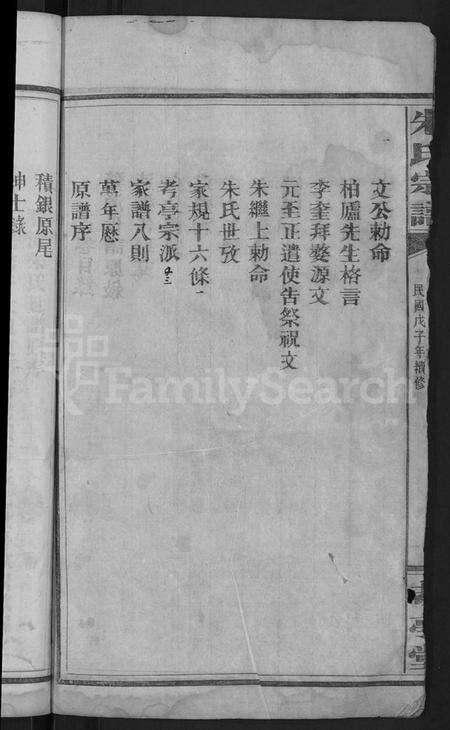 朱氏宗譜
民國戊子年續修
文公勅命
柏廬先生格言
李奎拜婺源文
元至正遣使告祭祝文
朱繼上勅命
朱氏世攷
家規十六條
考亭宗派
家譜八則
萬年曆
原譜序
積銀原尾
紳士錄
FamilySearch